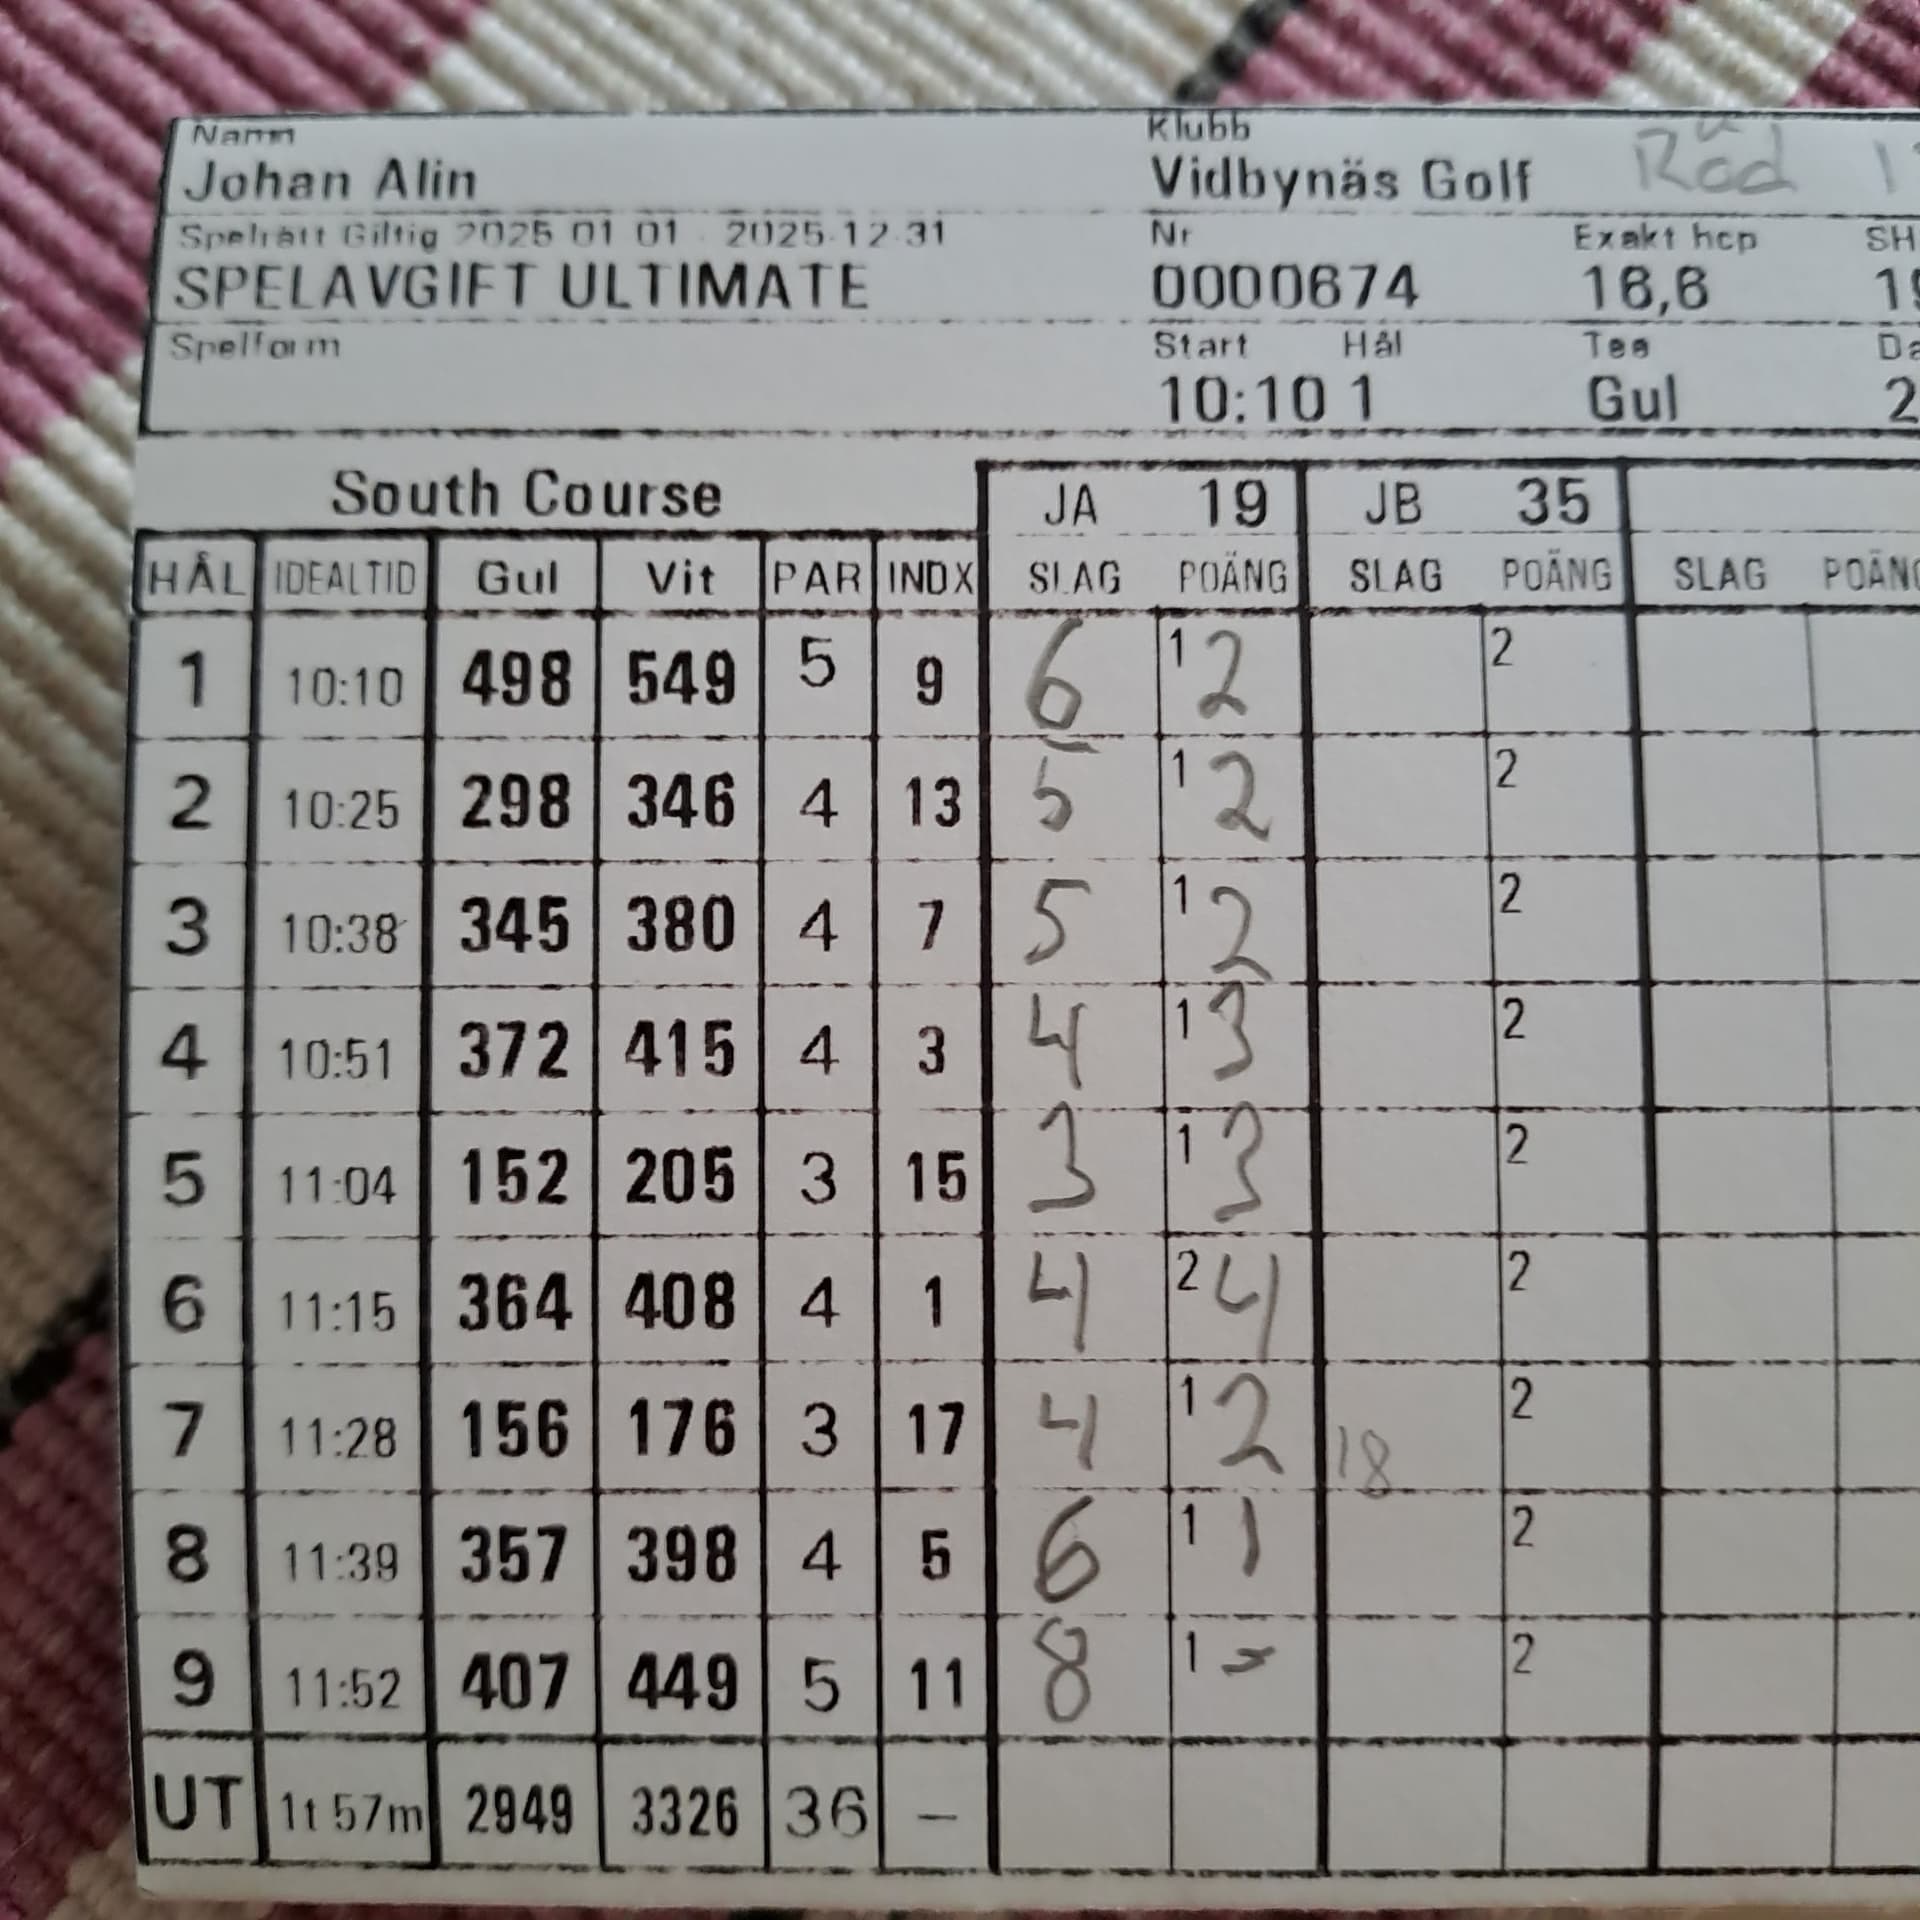 Namn Klubb
Johan Alin Vidbynäs Golf Röd
Spelrätt Giltig 2025 01 01 - 2025-12-31 Nr Exakt hcp SH
SPELAVGIFT ULTIMATE 0000674 16,6 19
Spelform Start Hål Tee Da
10:10 1 Gul 2
South Course JA 19 JB 35
HÅL IDEALTID Gul Vit PAR INDX SLAG POÄNG SLAG POÄNG SLAG POÄNG
1 10:10 498 549 5 9 6 1 2 2
2 10:25 298 346 4 13 5 1 2 2
3 10:38 345 380 4 7 5 1 2 2
4 10:51 372 415 4 3 4 1 3 2
5 11:04 152 205 3 15 3 1 3 2
6 11:15 364 408 4 1 4 2 4 2
7 11:28 156 176 3 17 4 1 2 18 2
8 11:39 357 398 4 5 6 1 1 2
9 11:52 407 449 5 11 8 1 - 2
UT 1t 57m 2949 3326 36 –